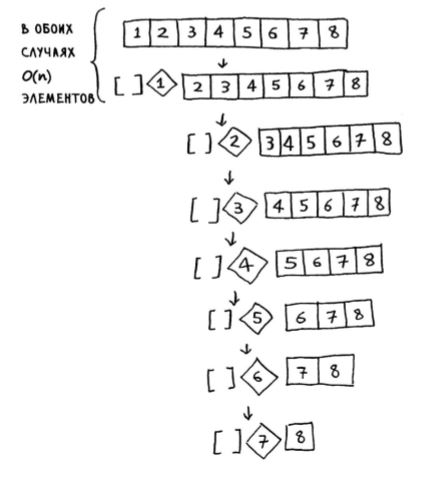 В ОБОИХ
СЛУЧАЯХ
O(n)
ЭЛЕМЕНТОВ
1 2 3 4 5 6 7 8
[ ] 1 2 3 4 5 6 7 8
[ ] 2 3 4 5 6 7 8
[ ] 3 4 5 6 7 8
[ ] 4 5 6 7 8
[ ] 5 6 7 8
[ ] 6 7 8
[ ] 7 8